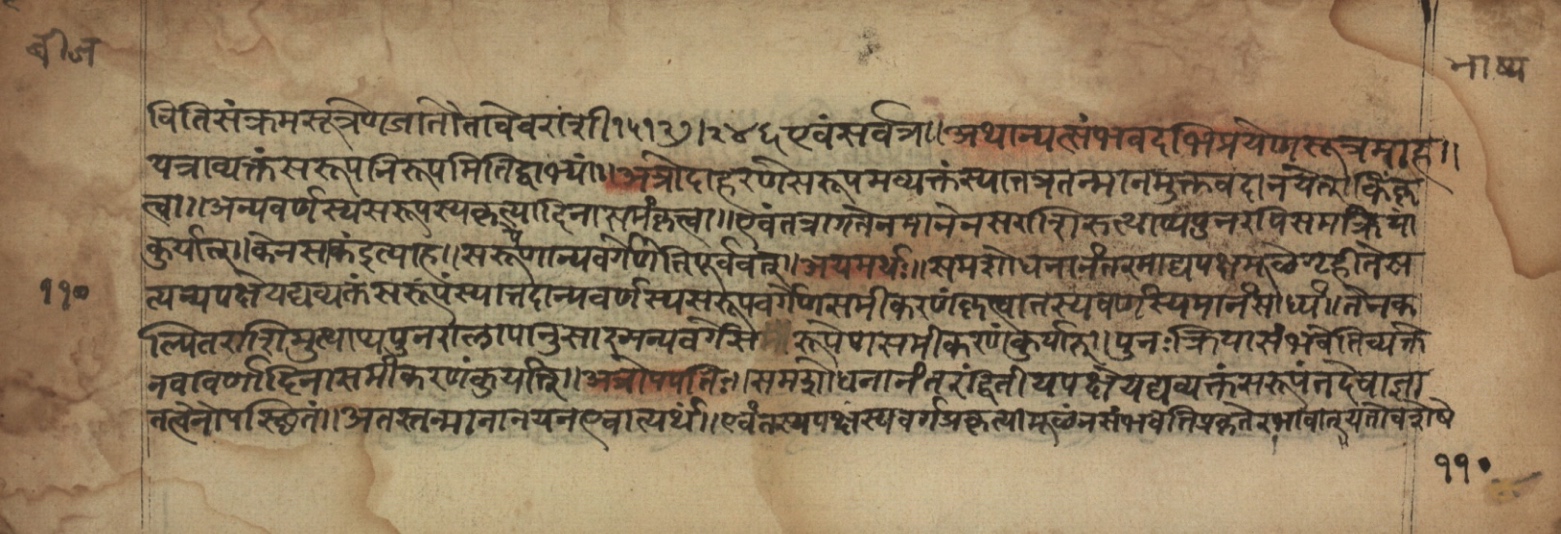 बीज
भाष्य
विति संक्रमसूत्रेण जातौ तावेव राशी १५।२७।२४६ एवं सर्वत्र।।अथान्यत्संभवदभिप्रायेण सूत्रमाह।।
यत्राव्यक्तं सरूपनिरूपमिति द्वाभ्यां।।अत्रोदाहरणे सरूपमव्यक्तं स्यात्तत्र तन्मानमुक्तवदानयेत् किं कृ
त्वा।।अन्यवर्णस्य सरूपस्य कृत्यादिना समं कृत्वा।।एवं तत्रागतेन मानेन स राशिमुत्थाप्य पुनरपि समक्रियां
कुर्यात्।।केन साकं इत्याह।।सरूपाणान्यवर्गेणेति पूर्ववत्।।अयमर्थः।।समशोधनानंतरमाद्यपक्षमूळे गृहीते अ
११०
त्यन्यपक्षे यद्यव्यक्तं सरूपं स्यात्तदान्यवर्णस्य सरूपवर्गेण समीकरणं कृत्वा तस्य वर्णस्य मानं साध्यं।।तेन क
ल्पितराशिमुत्थाप्य पुनरालापानुसारमन्यवर्ग रूपेण समीकरणं कुर्यात्।।पुनः क्रिया संभवेति व्यक्ते
नवा वर्णादिना समीकरणं कुर्यात्।।अत्रोपपत्तिः।।समशोधनानंतरं द्वितीयपक्षे यद्यव्यक्तं सरूपं तदैषा ज्ञा
तत्वेनोपस्छितं।।अतस्तन्मानानयन एवात्यर्थं।।एवं तस्य पक्षस्य वर्गप्रकृत्या मूळं न संभवेति प्रकृतेरभावात् यतो वशेषे
११०